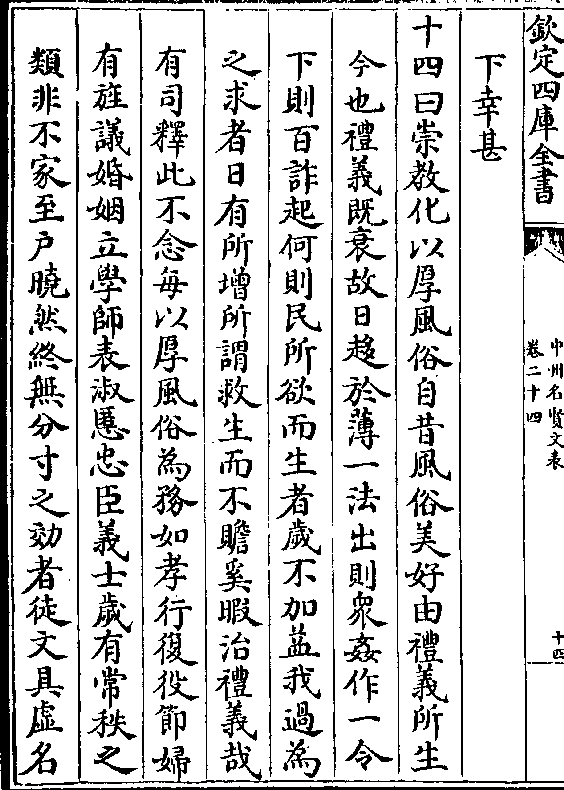 欽定四庫全書
中州名賢文表
卷二十四
十四
下幸甚
十四曰崇教化以厚風俗自昔風俗美好由禮義所生
今也禮義既衰故日趍於薄一法出則衆姦作一令
下則百詐起何則民所欲而生者歲不加益我過為
之求者日有所增所謂救生而不贍奚暇治禮義哉
有司釋此不念每以厚風俗為務如孝行復役節婦
有旌議婚姻立學師表淑慝忠臣義士歲有常秩之
類非不家至户曉然終無分寸之効者徒文具虛名